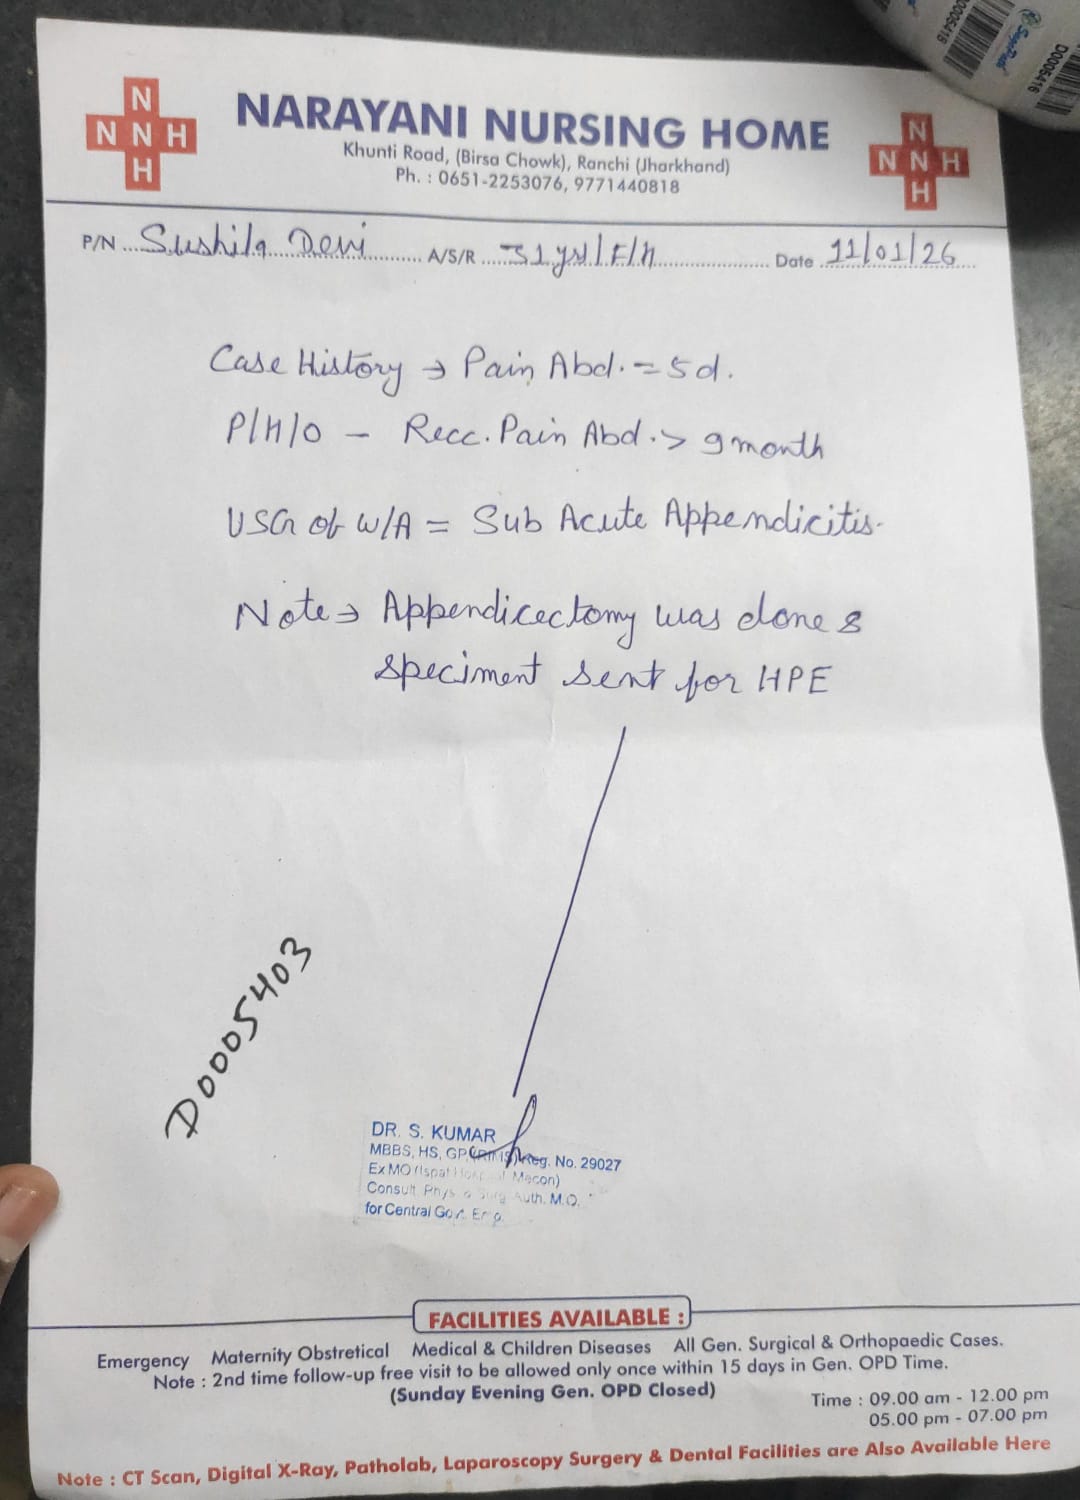 N
N N H
H
NARAYANI NURSING HOME
Khunti Road, (Birsa Chowk), Ranchi (Jharkhand)
Ph. : 0651-2253076, 9771440818
N
N N H
H
P/N ... Sushila Devi ... A/S/R ... 31 yrs/F/H ... Date 11/01/26
Case History → Pain Abd. = 5d.
P/H/O - Recc. Pain Abd. > 9 month
USG of W/A = Sub Acute Appendicitis.
Note → Appendicectomy was done &
speciment sent for HPE
D0005403
DR. S. KUMAR
MBBS, HS, GP (RIMS) Reg. No. 29027
Ex MO (Ispat Hospital Mecon)
Consult. Phys. & Surg. Auth. M.O.
for Central Gov.
FACILITIES AVAILABLE :
Emergency Maternity Obstretical Medical & Children Diseases All Gen. Surgical & Orthopaedic Cases.
Note : 2nd time follow-up free visit to be allowed only once within 15 days in Gen. OPD Time.
(Sunday Evening Gen. OPD Closed)
Time : 09.00 am - 12.00 pm
05.00 pm - 07.00 pm
Note : CT Scan, Digital X-Ray, Patholab, Laparoscopy Surgery & Dental Facilities are Also Available Here
D0005416
D0005416